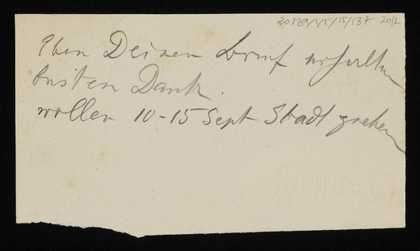 30189/45/15/137 20/2
Eben Deinen Brief erhalten
besten Dank.
wollen 10-15 Sept Stadt gehen